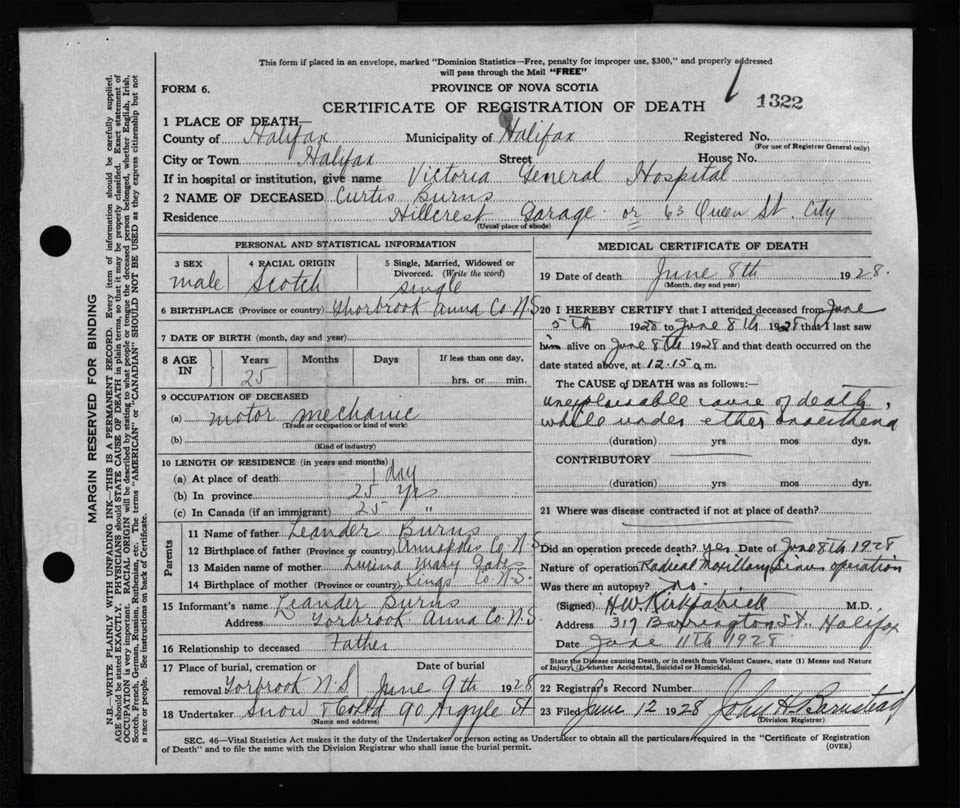 This form if placed in an envelope, marked "Dominion Statistics—Free, penalty for improper use, $300," and properly addressed
will pass through the Mail "FREE"
FORM 6.
PROVINCE OF NOVA SCOTIA
CERTIFICATE OF REGISTRATION OF DEATH
1322
1 PLACE OF DEATH—
County of Halifax Municipality of Halifax Registered No.
(For use of Registrar General only)
City or Town Halifax Street House No.
If in hospital or institution, give name Victoria General Hospital
2 NAME OF DECEASED Curtis Burns
Residence Hillcrest Garage or 63 Queen St. City
(Usual place of abode)
PERSONAL AND STATISTICAL INFORMATION
3 SEX
male
4 RACIAL ORIGIN
Scotch
5 Single, Married, Widowed or
Divorced. (Write the word)
single
6 BIRTHPLACE (Province or country) Anna Co. N.S
7 DATE OF BIRTH (month, day and year)
8 AGE IN
Years Months Days If less than one day,
25 hrs. or min.
9 OCCUPATION OF DECEASED
(a) motor mechanic
(Trade or occupation or kind of work)
(b)
(Kind of industry)
10 LENGTH OF RESIDENCE (in years and months)
(a) At place of death 1 day
(b) In province 25 yrs
(c) In Canada (if an immigrant) 25 "
Parents
11 Name of father Leander Burns
12 Birthplace of father (Province or country) Annapolis Co. N.S
13 Maiden name of mother Mary
14 Birthplace of mother (Province or country) Kings Co. N.S.
15 Informant's name Leander Burns
Address Torbrook Anna Co. N.S
16 Relationship to deceased Father
17 Place of burial, cremation or
removal Torbrook N.S
Date of burial
June 9th 1928
18 Undertaker Snow & Co Ltd 90 Argyle St
(Name and address)
MEDICAL CERTIFICATE OF DEATH
19 Date of death June 8th 1928.
(Month, day and year)
20 I HEREBY CERTIFY that I attended deceased from June
5th 1928 to June 8th 1928 that I last saw
him alive on June 8th 1928 and that death occurred on
date stated above, at 12.15 a.m.
The CAUSE of DEATH was as follows:—
unexplainable cause of death,
while under ether anaesthesia
(duration) yrs mos dys.
CONTRIBUTORY
(duration) yrs mos dys.
21 Where was disease contracted if not at place of death?
Did an operation precede death? yes Date of June 8th 1928
Nature of operation Radical Maxillary Sinus operation
Was there an autopsy? no.
(Signed) H.W. Kirkpatrick M.D.
Address 317 Barrington St. Halifax
Date June 11th 1928
State the Disease causing Death, or in death from Violent Causes, state (1) Means and Nature
of Injury, (2) whether Accidental, Suicidal or Homicidal.
22 Registrar's Record Number
23 Filed June 12 1928 John H. Barnstead
(Division Registrar)
SEC. 46—Vital Statistics Act makes it the duty of the Undertaker or person acting as Undertaker to obtain all the particulars required in the "Certificate of Registration
of Death" and to file the same with the Division Registrar who shall issue the burial permit.
(OVER)
MARGIN RESERVED FOR BINDING
N.B.—WRITE PLAINLY WITH UNFADING INK—THIS IS A PERMANENT RECORD. Every item of information should be carefully supplied.
AGE should be stated EXACTLY. PHYSICIANS should STATE CAUSE OF DEATH in plain terms, so that it may be properly classified. Exact statement of
OCCUPATION is very important. RACIAL ORIGIN will be described by stating to what people or tongue the deceased person belonged, whether English, Irish,
Scotch, French, German, Russian, Ruthenian, etc. The terms "AMERICAN" or "CANADIAN" SHOULD NOT BE USED as they express citizenship but not
a race or people. See instructions on back of Certificate.